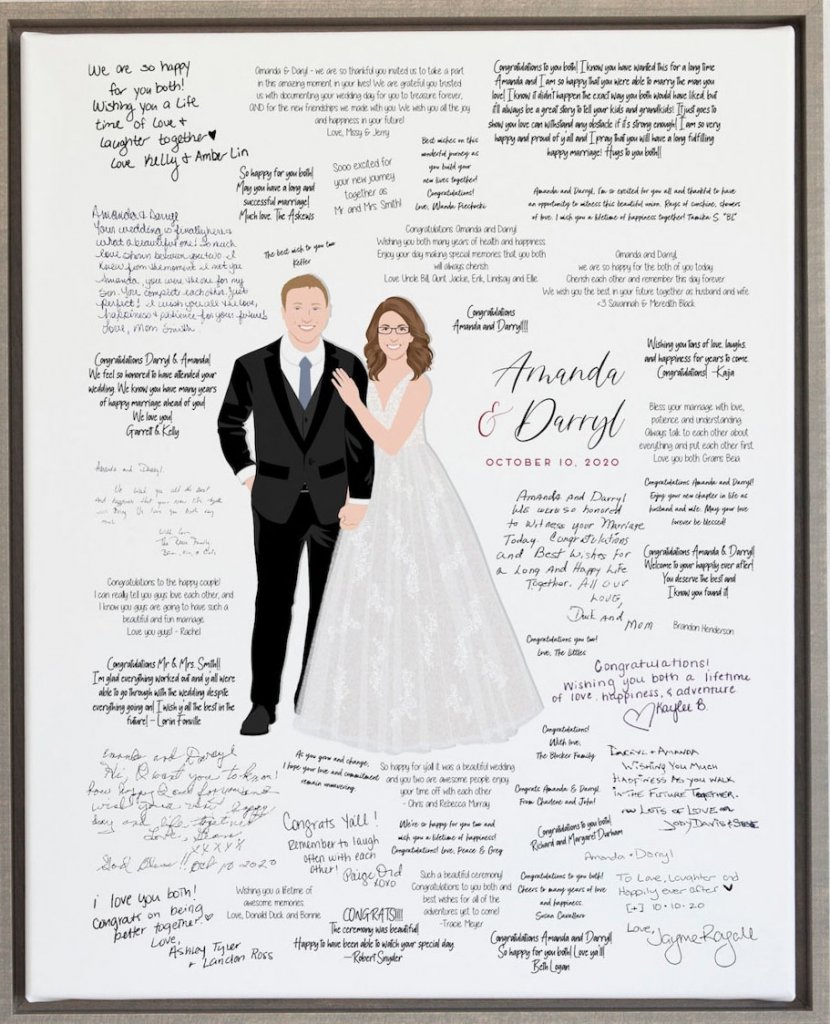 We are so happy
for you both!
Wishing you a Life
time of Love &
Laughter together♥
Love Kelly & Amber Lin
Amanda & Daryl - we are so thankful you invited us to take a part
in this amazing moment in your lives! We are grateful you trusted
us with documenting your wedding day for you to treasure forever,
AND for the new friendships we made with you. We wish you all the joy
and happiness in your future!
Love, Missy & Jerry
Congratulations to you both! I know you have wanted this for a long time
Amanda and I am so happy that you were able to marry the man you
love! I know it didn't happen the exact way you both would have liked but
it'll always be a great story to tell your kids and grandkids! It just goes to
show you love can withstand any obstacle if it's strong enough! I am so very
happy and proud of y'all and I pray that you will have a long fulfilling
happy marriage! Hugs to you both!!
So happy for you both!
May you have a long and
successful marriage!
Much love. The Askews
Sooo excited for
your new journey
together as
Mr and Mrs Smith!
Best wishes on this
wonderful journey as
you build your
new lives together!
Congratulations!
Love, Wanda Piectocki
Amanda and Darryl, I'm so excited for you all and thankful to have
an opportunity to witness this beautiful union. Rays of sunshine, showers
of love. I wish you a lifetime of happiness together! Tamika S. "BL"
Amanda & Darryl
Your wedding is finally here &
what a beautiful one! So much
love shown between you two. I
knew from the moment I met you
Amanda, you were the one for my
son. You complete each other. Just
perfect! I wish you all the love,
happiness & patience for your future
Love, Mom Smith
The best wish to you two
Keller
Congratulations Amanda and Darryl
Wishing you both many years of health and happiness.
Enjoy your day making special memories that you both
will always cherish.
Love Uncle Bill, Aunt Jackie, Erik, Lindsay and Elle
Amanda and Darryl,
we are so happy for the both of you today.
Cherish each other and remember this day forever.
We wish you the best in your future together as husband and wife.
<3 Savannah & Meredith Black
Congratulations
Amanda and Darryl!!!
Congratulations Darryl & Amanda!
We feel so honored to have attended your
wedding. We know you have many years
of happy marriage ahead of you!
We love you!
Garrett & Kelly
Amanda
& Darryl
OCTOBER 10, 2020
Wishing you tons of love, laughs,
and happiness for years to come.
Congratulations! -Kaja
Bless your marriage with love,
patience and understanding.
Always talk to each other about
everything and put each other first.
Love you both Grams Beia
Amanda and Darryl,
We wish you all the best
Congratulations Amanda and Darryl!
Enjoy your new chapter in life as
husband and wife. May your love
forever be blessed!
Amanda and Darryl
We were so honored
to witness your Marriage
Today. Congratulations
and Best Wishes for
a Long And Happy Life
Together. All our
Love,
Duck and Mom
Congratulations Amanda & Darryl!
Welcome to your happily ever after!
You deserve the best and
I know you found it!
Brandon Henderson
Congratulations to the happy couple!
I can really tell you guys love each other, and
I know you guys are going to have such a
beautiful and fun marriage.
Love you guys! - Rachel
Congratulations you two!
Love, The Littles
Congratulations Mr & Mrs. Smith!!
I'm glad everything worked out and y'all were
able to go through with the wedding despite
everything going on! I wish y'all the best in the
future! - Lorin Fonville
Congratulations!
Wishing you both a lifetime
of love, happiness, & adventure
♡ Kaylee B.
Congratulations!
With love,
The Blocker Family
Amanda and Darryl
Hi, I want you to know
how happy I am for you and
wish you a very happy
day and life together
Love, Gram
XXXXX
God Bless!! Oct 10 2020
As you grow and change,
I hope your love and commitment
remain unwavering.
So happy for y'all it was a beautiful wedding
and you two are awesome people enjoy
your time off with each other
- Chris and Rebecca Murray
Congrats Amanda & Darryl
From Charlene and John!
Darryl & Amanda
Wishing You Much
Happiness As you walk
in the Future Together.
Lots of Love
Jody Davis & Steve
Congrats Y'all!
Remember to laugh
often with each
other!
Paige Ord
xoxo
We're so happy for you two and
wish you a lifetime of happiness!
Congratulations! Love, Peace & Grey
Congratulations to you both!
Richard and Margaret Durham
Amanda & Darryl
To Love, Laughter and
Happily ever after ♥
[+] 10·10·20
Love,
Jayme Royall
i love you both!
Congrats on being
better together ♡
Love,
Ashley Tyler
& Landon Ross
Wishing you a lifetime of
awesome memories.
Love, Donald Duck and Bonnie
Such a beautiful ceremony!
Congratulations to you both and
best wishes for all of the
adventures yet to come!
-Tracie Meyer
Congratulations to you both!
Cheers to many years of love
and happiness.
Susan Cavallaro
CONGRATS!!!!
The ceremony was beautiful!
Happy to have been able to watch your special day.
-Robert Snyder
Congratulations Amanda and Darryl!
So happy for you both! Love ya'll!
Beth Logan